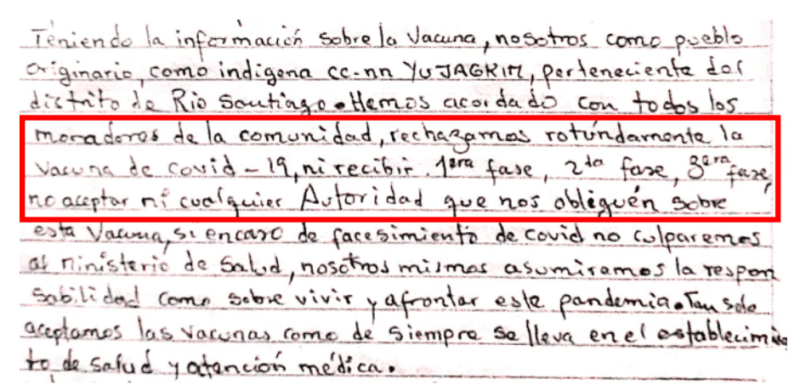 Teniendo la información sobre la Vacuna, nosotros como pueblo
originario, como indigena cc.nn YUJAGKIM, perteneciente del
distrito de Rio Santiago. Hemos acordado con todos los
moradores de la comunidad, rechazamos rotúndamente la
Vacuna de covid-19, ni recibir 1era fase, 2da fase, 3era fase,
no aceptar ni cualquier Autoridad que nos obliguén sobre
esta Vacuna, si encaso de facesimiento de covid no culparemos
al ministerio de Salud, nosotros mismos asumiramos la respon
sabilidad como sobre vivir y afrontar este pandemia. Tan solo
aceptamos las vacunas como de siempre se lleva en el establecimien
to de salud y atención médica.